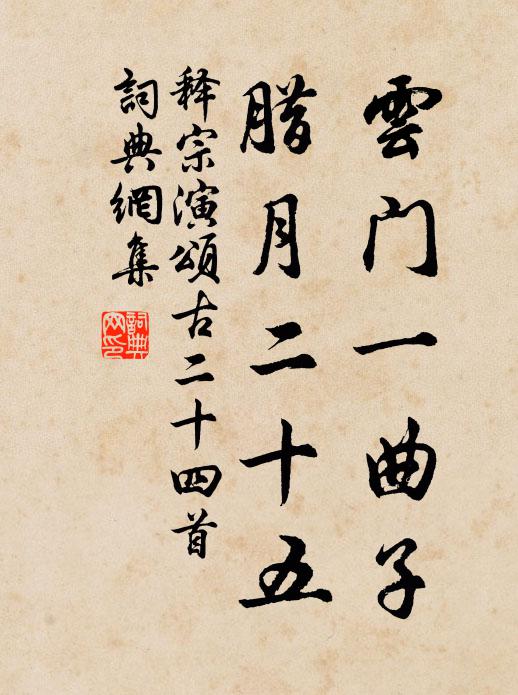 雲门一曲子
腊月二十五
释宗演頌古二十四首
詞典網集
詞典网印